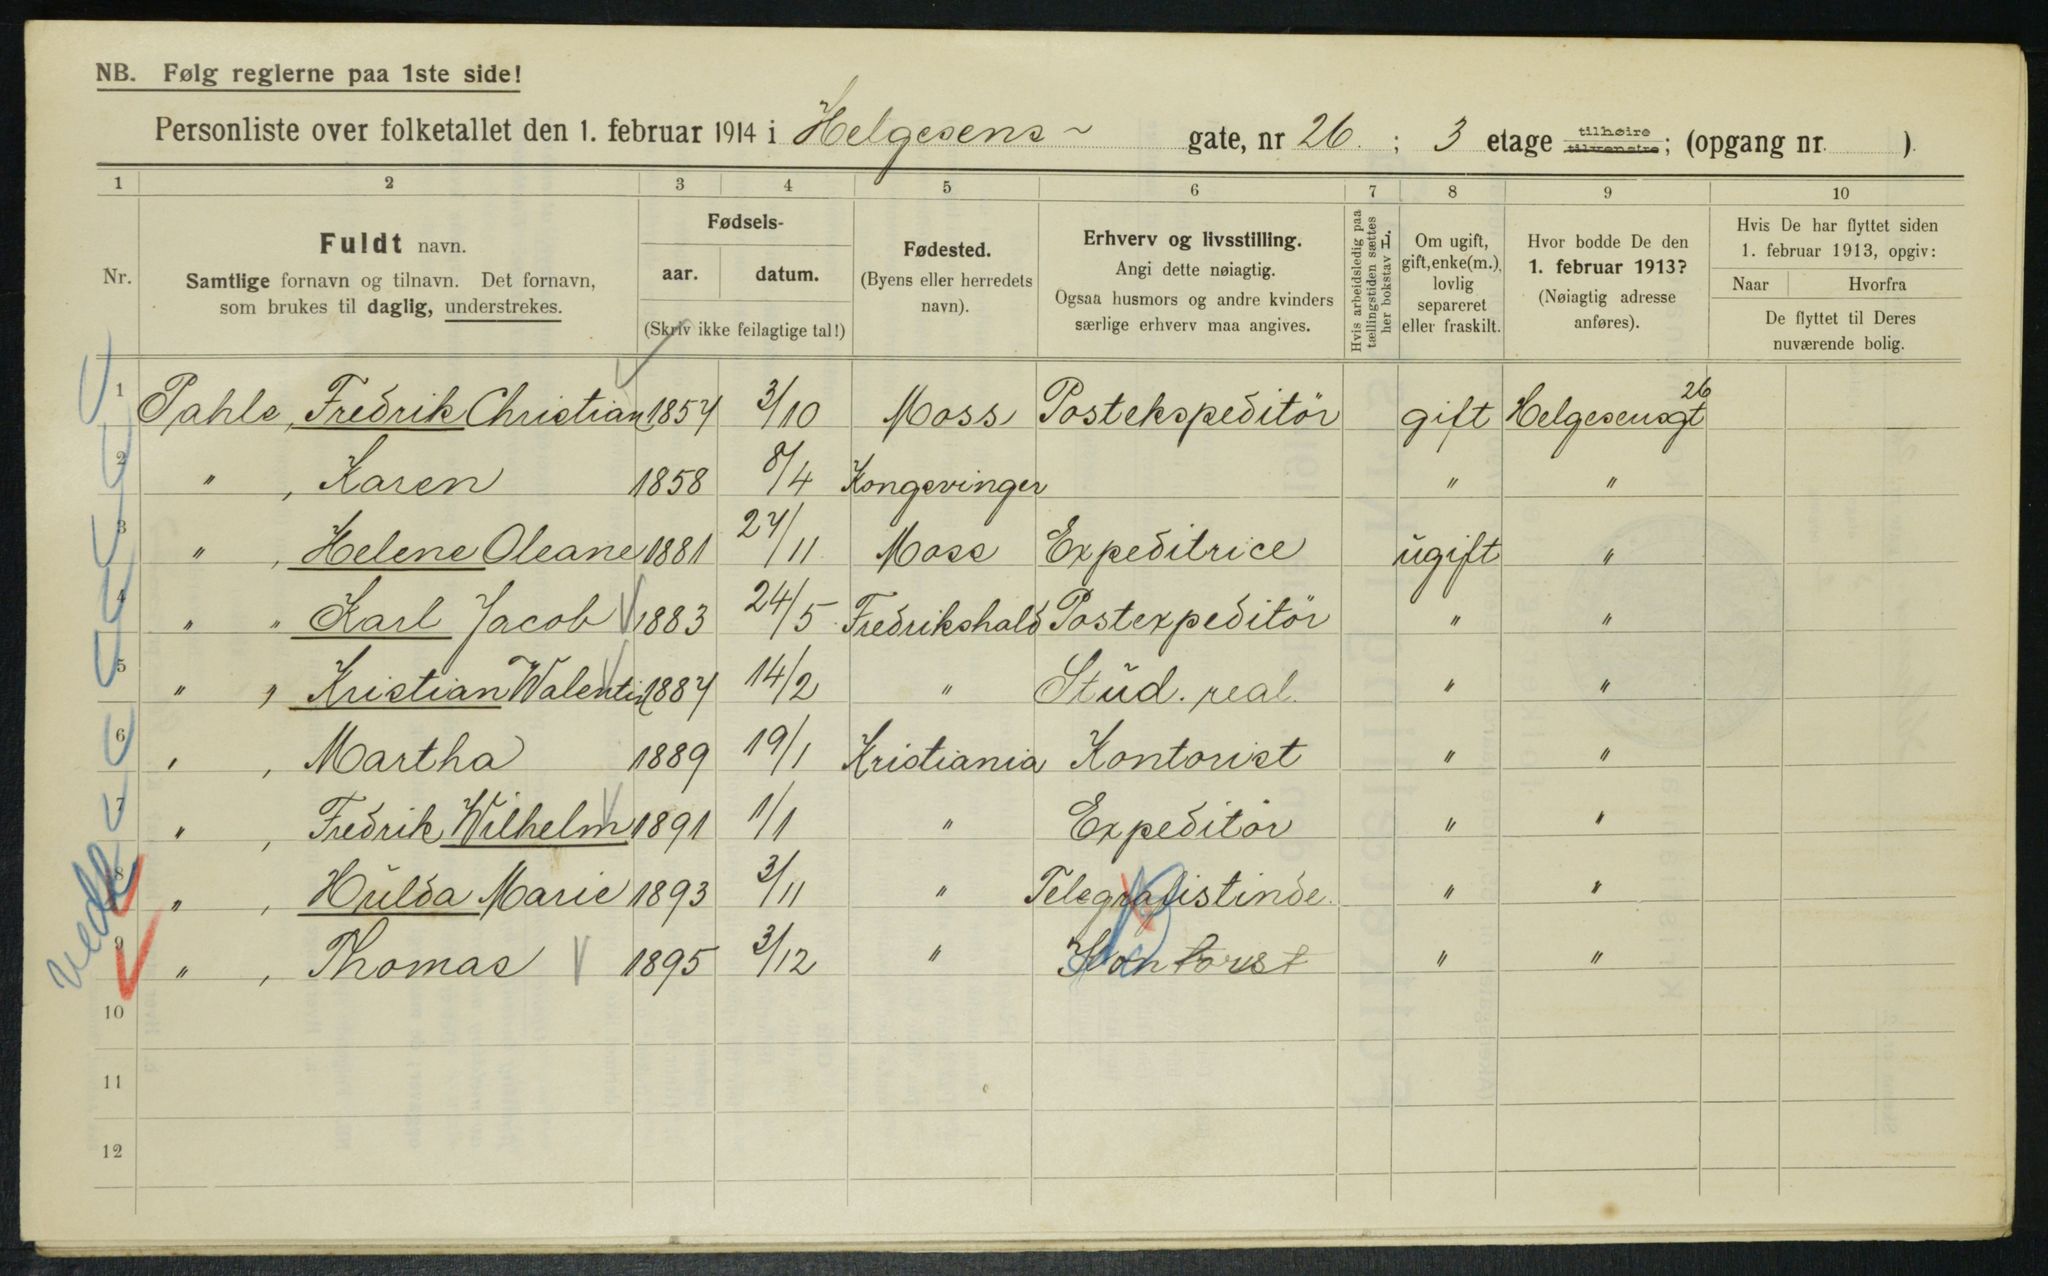 NB. Følg reglerne paa 1ste side!
Personliste over folketallet den 1. februar 1914 i Helgesens~ gate, nr 26. ; 3 etage tilhøire tilvenstre; (opgang nr. )
1 2 3 4 5 6 7 8 9 10
Nr.
Fuldt navn.
Samtlige fornavn og tilnavn. Det fornavn,
som brukes til daglig, understrekes.
Fødsels-
aar. datum.
(Skriv ikke feilagtige tal!)
Fødested.
(Byens eller herredets
navn).
Erhverv og livsstilling.
Angi dette nøiagtig.
Ogsaa husmors og andre kvinders
særlige erhverv maa angives.
Hvis arbeidsledig paa
tællingstiden sættes
her bokstav L.
Om ugift,
gift, enke(m.),
lovlig
separeret
eller fraskilt.
Hvor bodde De den
1. februar 1913?
(Nøiagtig adresse
anføres).
Hvis De har flyttet siden
1. februar 1913, opgiv:
Naar Hvorfra
De flyttet til Deres
nuværende bolig.
1 Pahle, Fredrik Christian 1857 3/10 Moss Postekspeditör gift Helgesensgt 26
2 " , Karen 1858 8/4 Kongsvinger " "
3 " , Helene Oleane 1881 27/11 Moss Expeditrice ugift "
4 " " Karl Jacob 1883 24/5 Fredrikshald Postexpeditör " "
5 " " Kristian Walentin 1887 14/2 " Stud. real. " "
6 " , Martha 1889 19/1 Kristiania Kontorist " "
7 " , Fredrik Wilhelm 1891 1/1 " Expeditör " "
8 " , Hulda Marie 1893 3/11 " Telegrafistinde. " "
9 " , Thomas 1895 3/12 " Kontorist " "
10
11
12